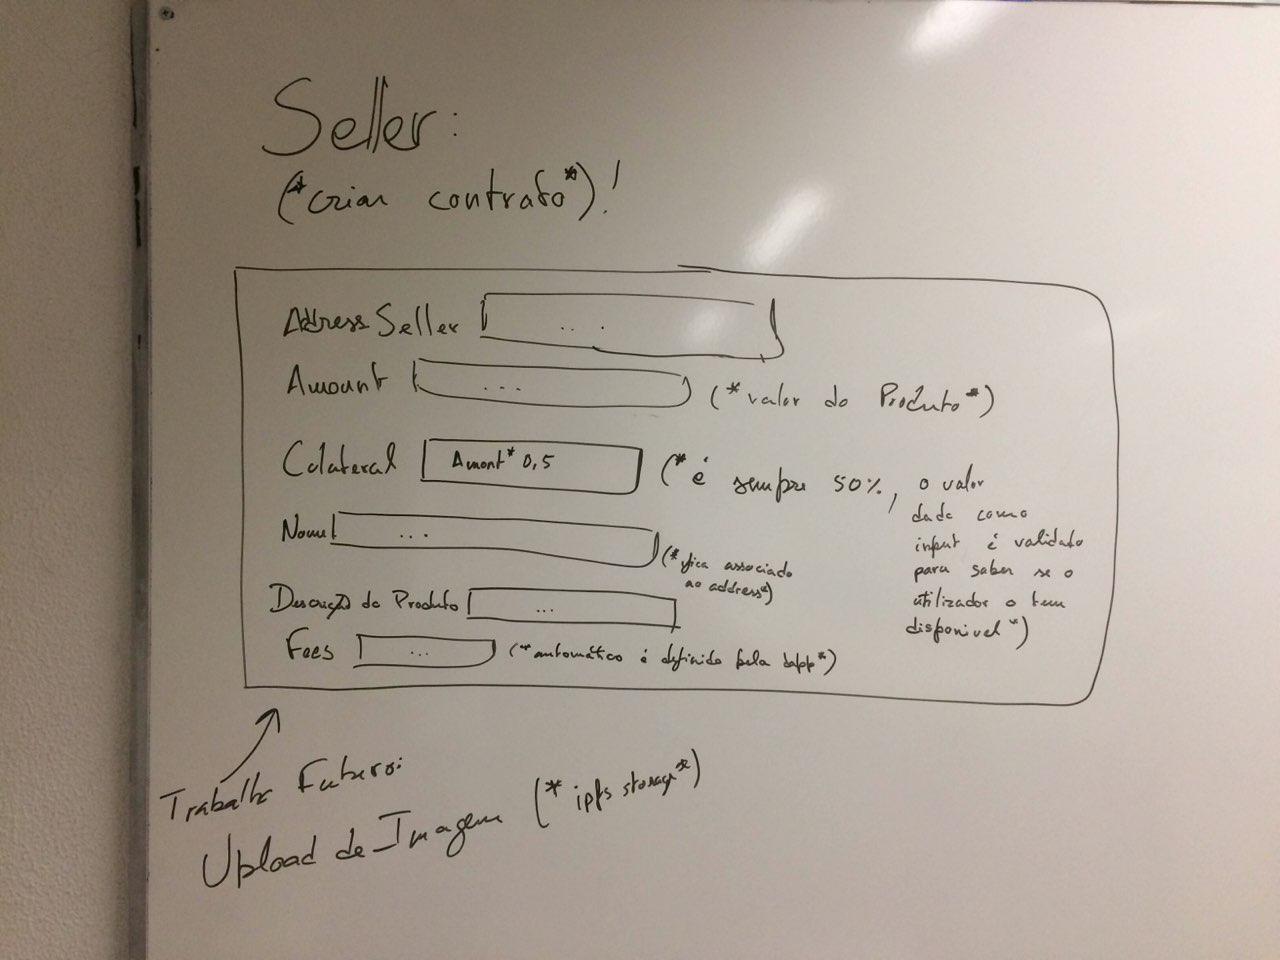 Seller:
(*criar contrato*)!
Address Seller ...
Amount ... (*valor do Produto*)
Colateral Amont* 0,5 (*é sempre 50%, o valor
dado como
input é validado
para saber se o
utilizador o tem
disponivel*)
Nome ... (*fica associado
ao address*)
Descrição do Produto ...
Fees ... (*automático é definido pela dapp*)
Trabalho Futuro:
Upload de Imagem (*ipfs storage*)